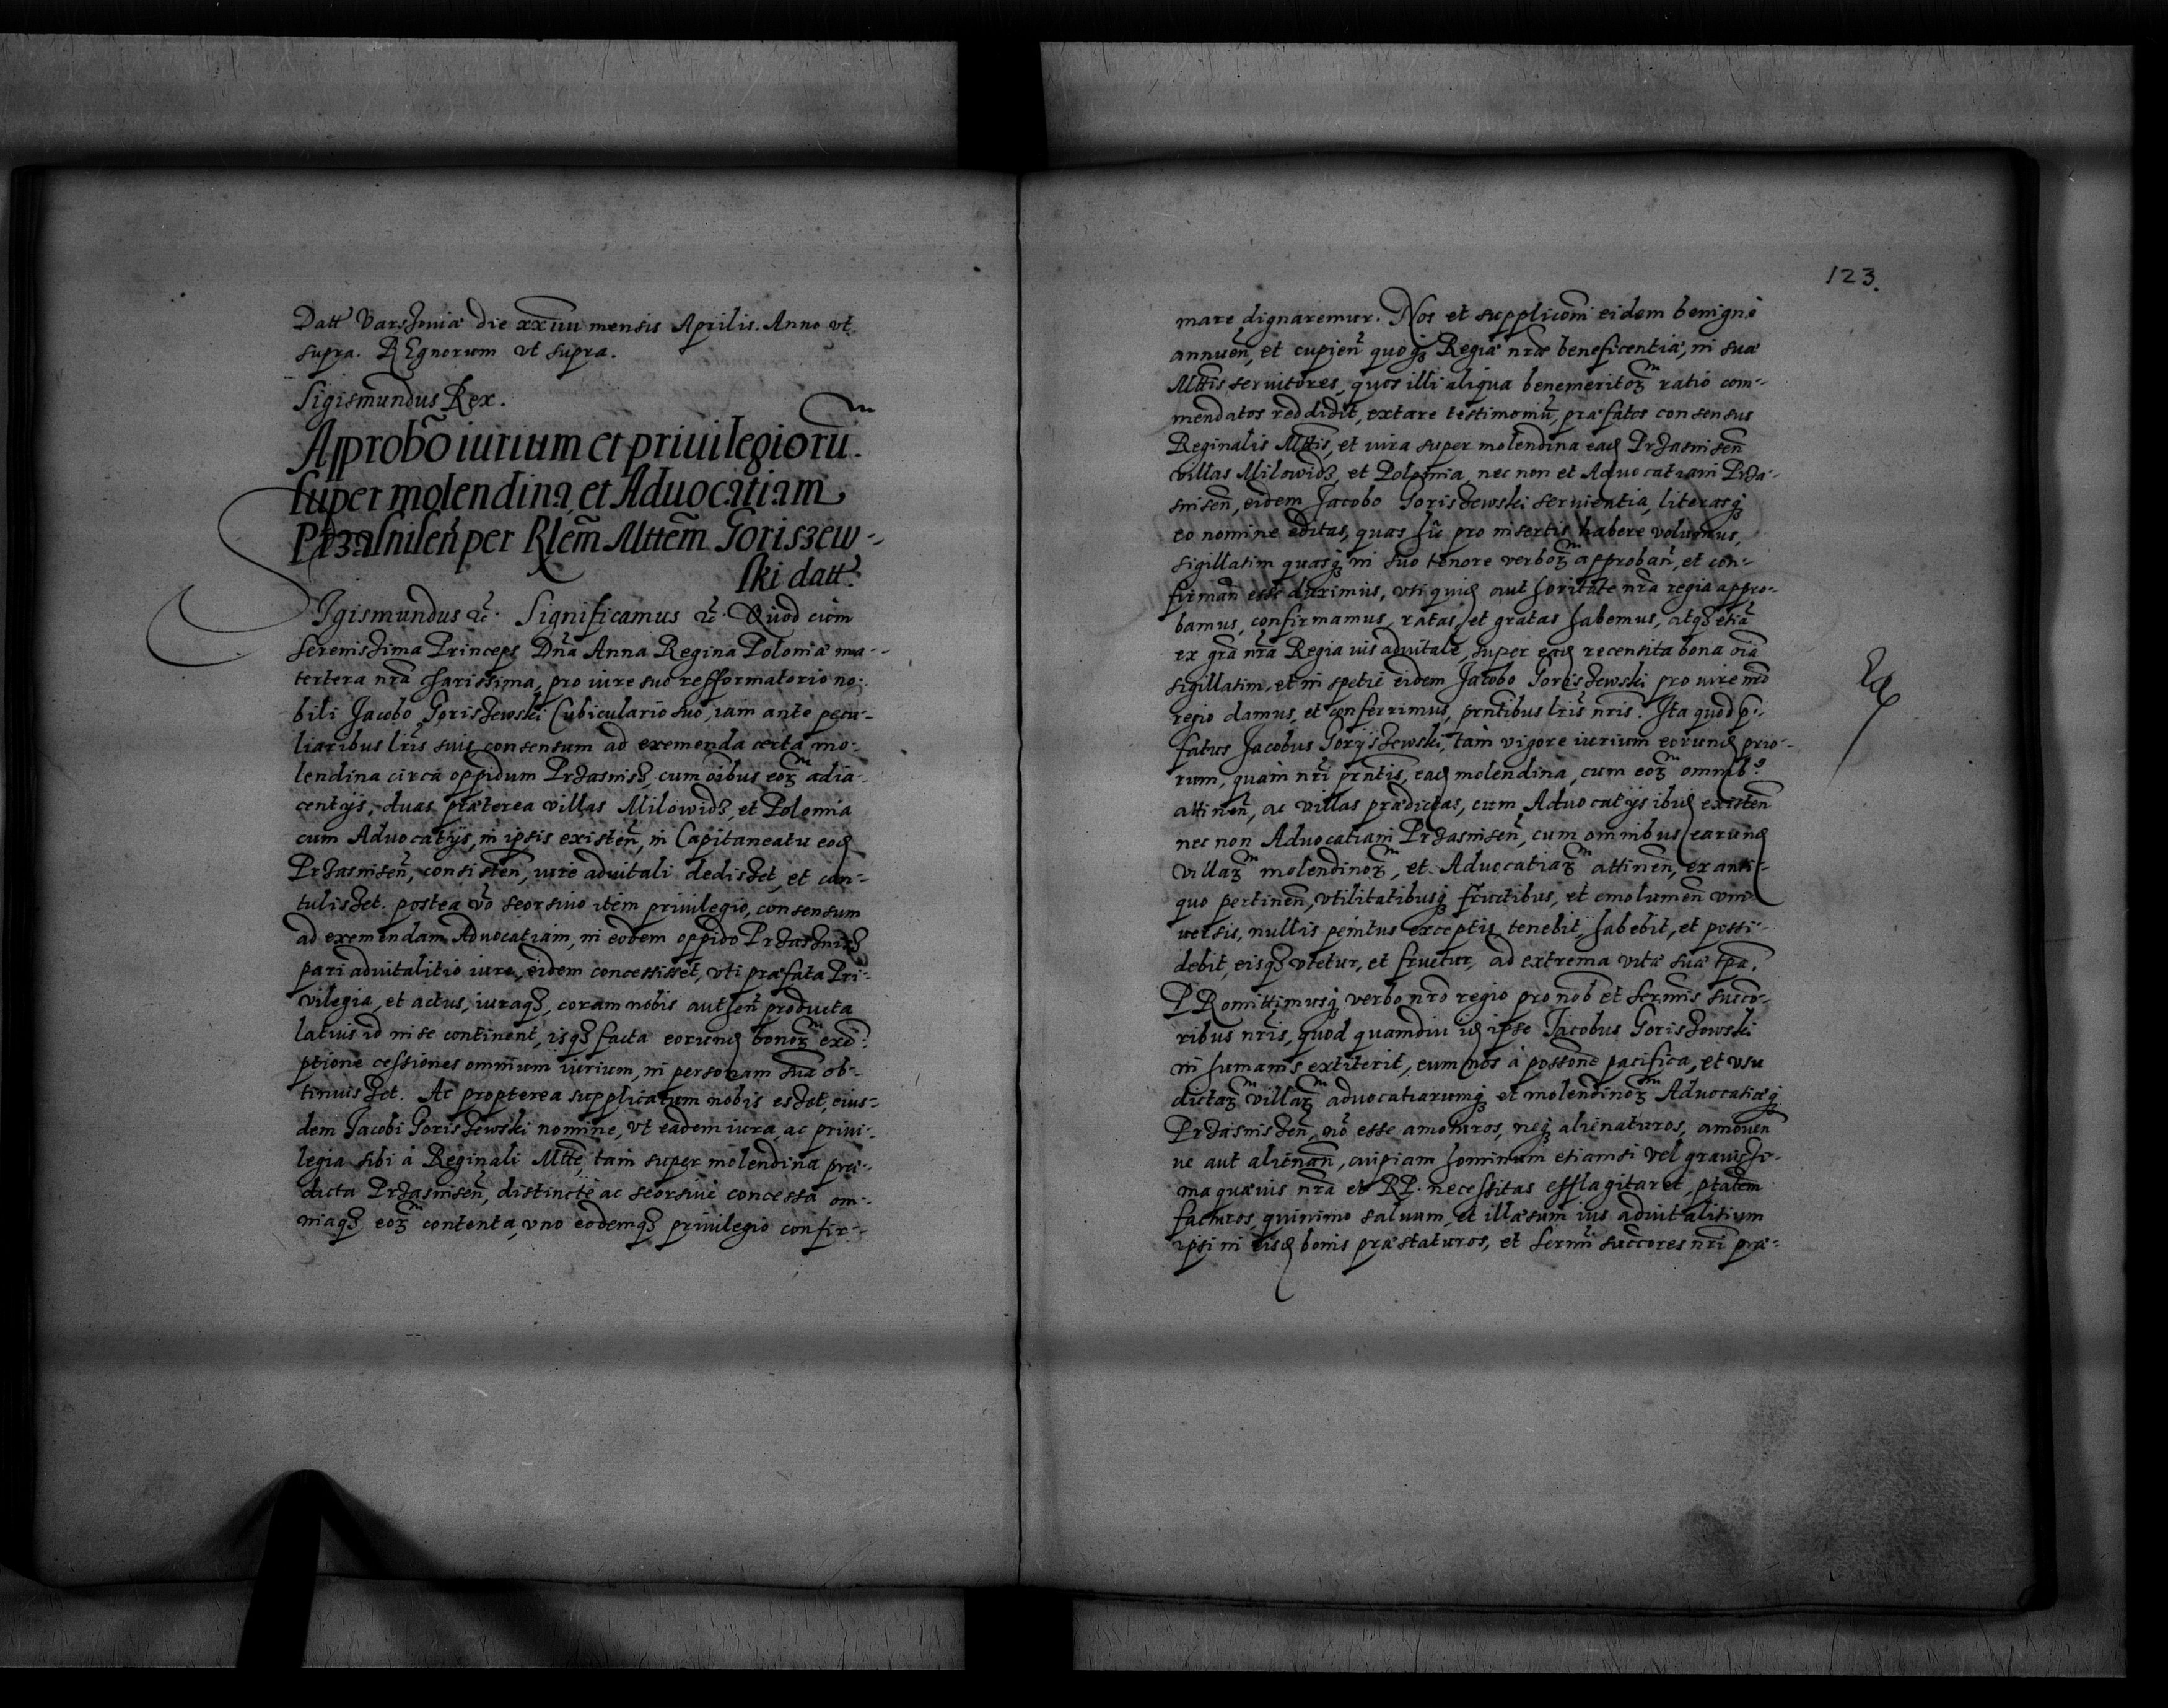 Datt Varszouiæ die xxiiii mensis Aprilis. Anno vt
supra. REgnorum vt supra.
Sigismundus Rex.
Approbõ iurium et priuilegiorũ
super molendina et Aduocatiam
Przasnisen̄ per Rlem̃ Mttem̃ Goriszew-
ski datt.
SIgismundus etc. Significamus etc. Quod cum
serenissima Princeps Dña Anna Regina Poloniæ ma-
tertera nr̃a charissima, pro iure suo refformatorio no-
bili Jacobo Goriszewski Cubiculario suo, iam ante pecu-
liaribus lr̃is suis consensum ad exemenda certa mo-
lendina circa oppidum Przasnisz, cum oĩbus eorꝫ adia-
centijs, duas præterea villas Milowidz, et Polonia
cum Aduocatijs, in ipsis existeñ, in Capitaneatu eoḍ
Przasniseñ, consisteñ, iure aduitali dediszet, et con-
tuliszet. postea võ seorsiuo item priuilegio, consensum
ad exemendam Aduocatiam, in eodem oppido Przasznisz
pari aduitalitio iure, eidem concessisset, vti præfata Pri-
vilegia, et actus, iuraqꝫ, coram nobis autheñ producta
latius id in se continent, isqꝫ facta eorunḍ bonorꝫ exẽ-
ptione cessiones omnium iurium, in personam suã ob-
tinuiszet. Ac propterea supplicatum nobis eszet, eius-
dem Jacobi Goriszewski nomine, vt eadem iura, ac priui-
legia sibi à Reginali Mtte, tam super molendina præ-
dicta Przasniseñ, distinctè ac seorsiuè concessa om-
niaqꝫ eorꝫ contenta, vno eodemqꝫ priuilegio confir-
123.
mare dignaremur. Nos et supplicõni eidem benignè
annueñ, et cupieñ quoqꝫ Regiæ nr̃æ beneficentiæ, in suæ
Mttis seruitores, quos illi aliqua benemeritorꝫ ratio com-
mendatos reddidit, extare testimoniũ, præfatos consensus
Reginalis Mttis, et iura super molendina eaḍ Przasniseñ
villas Milowidz, et Polonia, nec non et Aduocatiam Prza-
sniseñ, eidem Jacobo Goriszewski seruientia, literasqꝫ
eo nomine editas, quas hic pro insertis habere volumus,
sigillatim quasqꝫ in suo tenore verborꝫ approbañ, et con-
firmañ esse duximus, vti quiḍ authoritate nr̃a regia appro-
bamus, confirmamus, ratas, et gratas habemus, atqꝫ etiã
ex gr̃a nr̃a Regia ius aduitale, super eaḍ recensita bona oĩa
sigillatim, et in spetie eidem Jacobo Goriszewski pro iure nr̃o
regio damus, et conferrimus, prñtibus lr̃is nr̃is. Ita quod p̃-
fatus Jacobus Gorijszewski, tam vigore iurium eorunḍ prio-
rum, quàm nr̃i prñtis, eaḍ molendina, cum eorꝫ omnibꝰ
attineñ, ac villas prædictas, cum Aduocatijs ibiḍ existeñ
nec non Aduocatiam Przasniseñ, cum omnibus earunḍ
villarꝫ molendinorꝫ, et Aduocatiarꝫ attineñ, ex anti-
quo pertineñ, vtilitatibusqꝫ fructibus, et emolumeñ vni-
uersis, nullis penitus exceptis, tenebit, habebit, et possi-
debit, eisqꝫ vtetur, et fruetur, ad extrema vitæ suæ tp̃a.
PRomittimusqꝫ verbo nr̃o regio pro nob et sermĩs succo-
ribus nr̃is, quod quamdiu iḍ ipse Jacobus Goriszowski
in humanis extiterit, eum nos à possõne pacifica, et vsu
dictarꝫ villarꝫ aduocatiarumqꝫ et molendinorꝫ Aduocatiæqꝫ
Przasniszeñ, nõ esse amoturos, neqꝫ alienaturos, amoueñ
ue aut alienañ, cuipiam hominum etiamsi vel grauissi-
ma quæuis nr̃a et RP. necessitas efflagitaret, ptatem
facturos, quinimo saluum, et illæsum ius aduitalitium
ipsi in eisḍ bonis præstaturos, et sermĩ succores nr̃i præ-